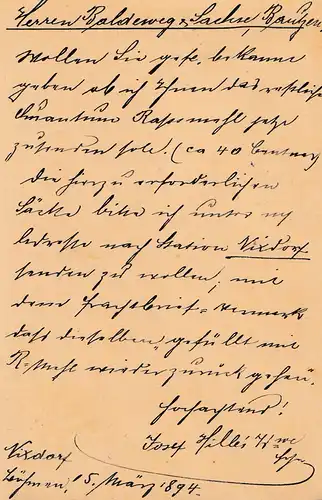 Herren Baldeweg & Sachse, Bautzen.
Wollen Sie gefl. bekannt
geben ob ich Ihnen das restliche
Quantum Rapsmehl jetzt
zusenden soll. (ca 40 Centner)
Die hierzu erforderlichen
Säcke bitte ich unter
Adresse nach Station Nixdorf
senden zu wollen, mit
dem Frachtbrief-Vermerk
dass dieselben "gefüllt mit
R-Mehl wieder zurück gehen.
Hochachtend!
Josef Hille's Wwe
Nixdorf
Böhmen, 5. März 1894